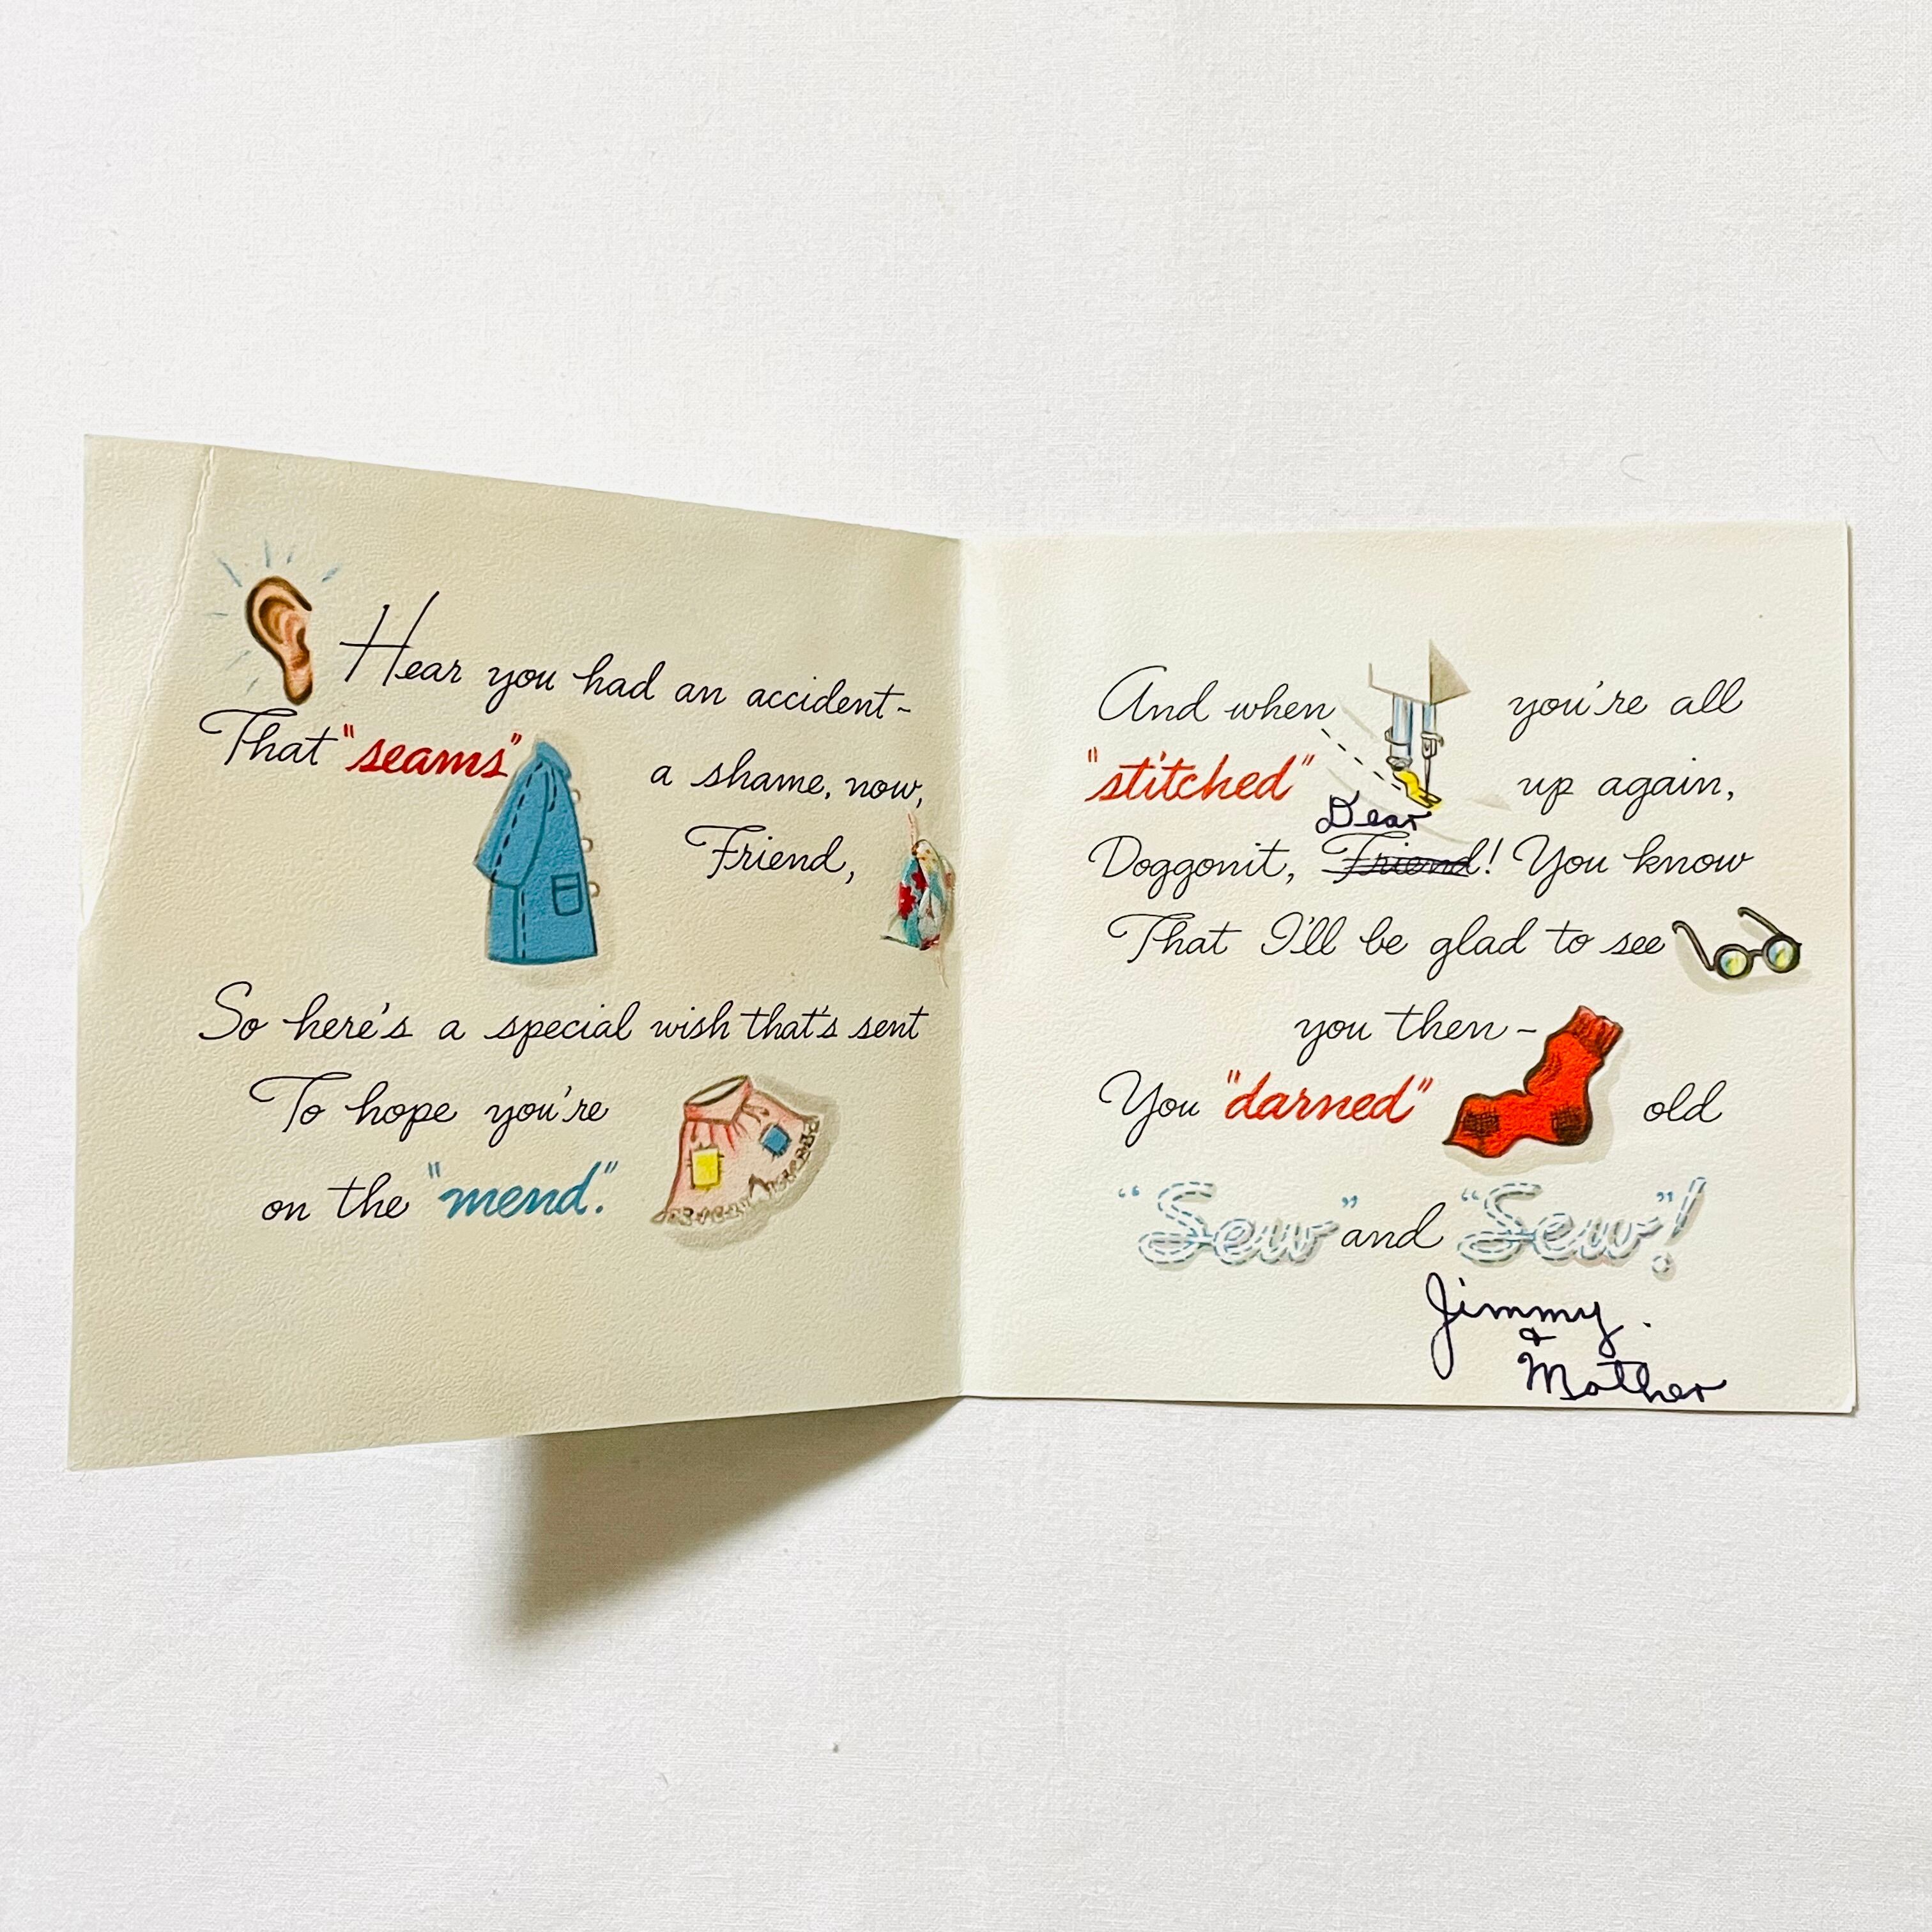 Hear you had an accident-
That "seams" a shame, now,
Friend,
So here's a special wish that's sent
To hope you're
on the "mend."
And when you're all
"stitched" up again,
Dear
Doggonit, Friend! You know
That I'll be glad to see
you then-
You "darned" old
"Sew" and "Sew"!
Jimmy.
&
Mother